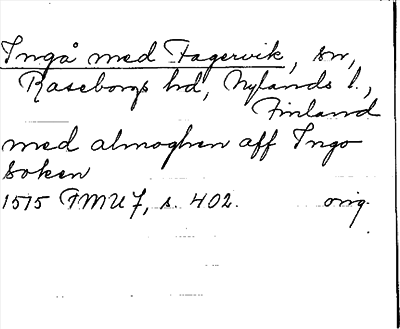 Ingå med Fagervik, sn,
Raseborgs hd, Nylands l.,
Finland
med almoghen aff Ingo
soken
1515 FMU 7, s. 402. orig.